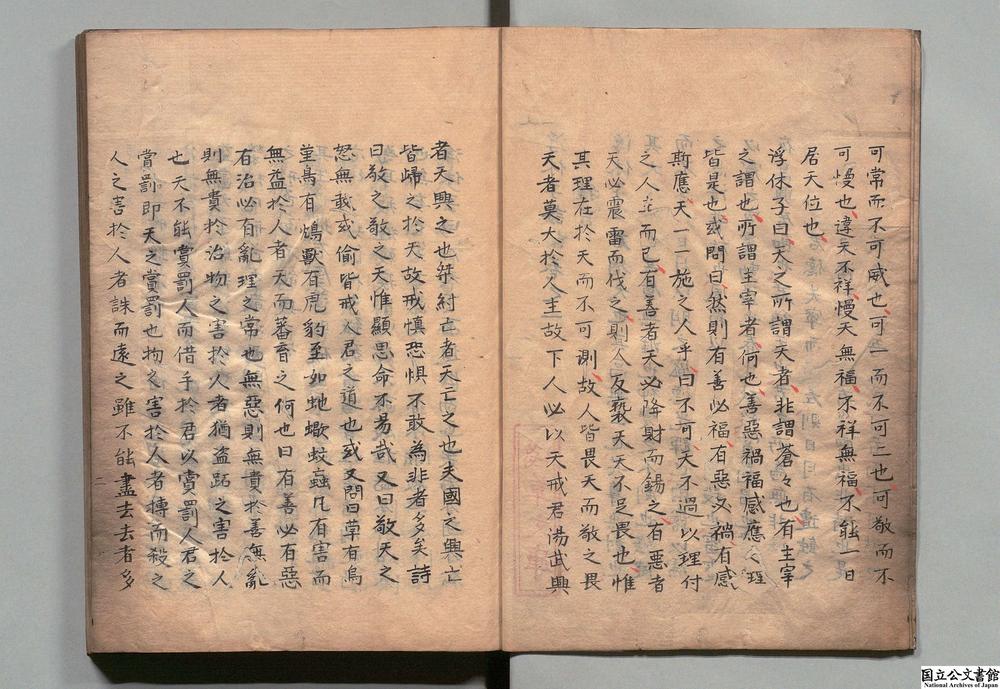 可常而不可威也可一而不可二也可敬而不
可慢也違天不祥慢天無福不祥無福不能一日
居天位也
浮休子曰天之所謂天者非謂蒼々也有主宰
之謂也所謂主宰者何也善惡禍福感應之理
皆是也或問曰然則有善必福有惡必禍有感
斯應天一一施之人乎曰不可天不過以理付
之人主而已有善者天必降財而錫之有惡者
天必震雷而伐之則人反褻天天不足畏也惟
其理在於天而不可測故人皆畏天而敬之畏
天者莫大於人主故下人必以天戒君湯武興
者天興之也桀紂亡者天亡之也夫國之興亡
皆歸之於天故戒慎恐懼不敢為非者多矣詩
曰敬之敬之天惟顯思命不易哉又曰敬天之
怒無敢或偷皆戒人君之道也或又問曰草有烏
堇鳥有鴆獸有虎豹至如虵蠍蚊蝱凡有害而
無益於人者天而蕃育之何也曰有善必有惡
有治必有亂理之常也無惡則無貴於善無亂
則無貴於治物之害於人者猶盜跖之害於人
也天不能賞罰人而借手於君以賞罰人君之
賞罰即天之賞罰也物之害於人者摶而殺之
人之害於人者誅而遠之雖不能盡去去者多
国立公文書館
National Archives of Japan